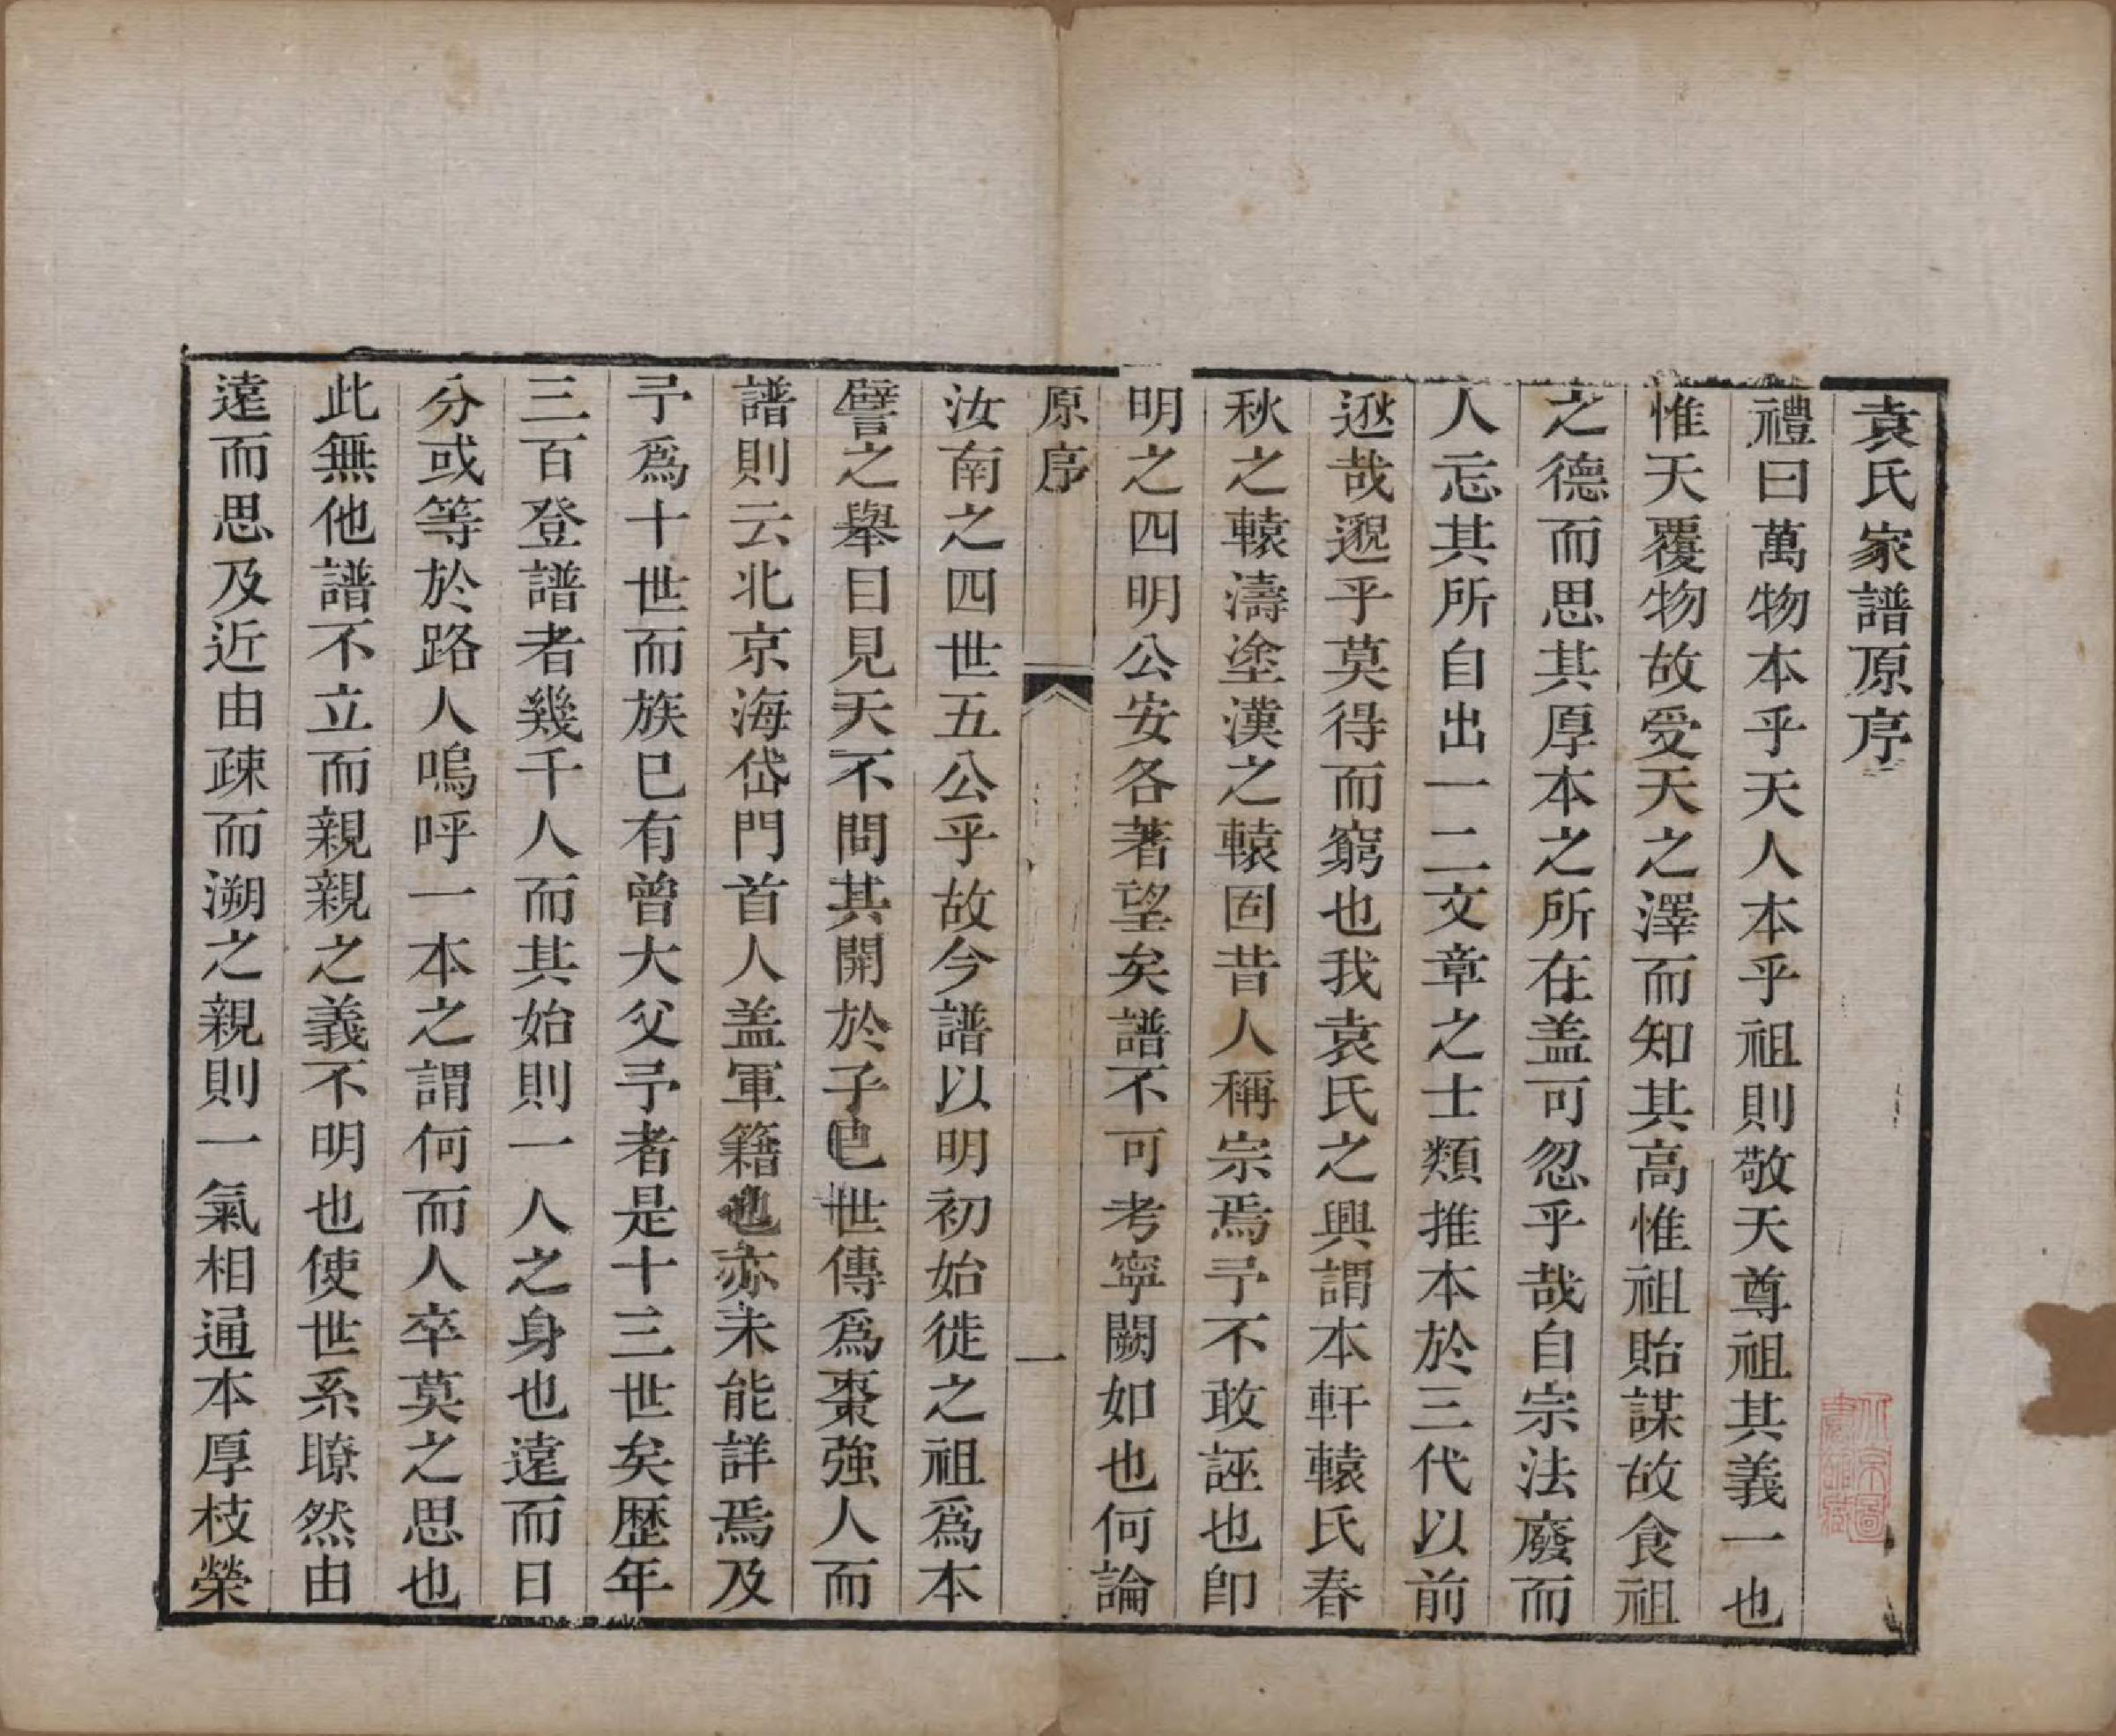 袁氏家譜原序
禮曰萬物本乎天人本乎祖則敬天尊祖其義一也
惟天覆物故受天之澤而知其高惟祖貽謀故食祖
之德而思其厚本之所在盖可忽乎哉自宗法廢而
人忘其所自出一二文章之士類推本於三代以前
逖哉邈乎莫得而窮也我袁氏之興謂本軒轅氏春
秋之轅濤塗漢之轅固昔人稱宗焉予不敢誣也卽
明之四明公安各著望矣譜不可考寧闕如也何論
原序
一
汝南之四世五公乎故今譜以明初始徙之祖爲本
譬之舉目見天不問其開於子也世傳爲棗強人而
譜則云北京海岱門首人盖軍籍也亦未能詳焉及
予爲十世而族已有曾大父予者是十三世矣歴年
三百登譜者幾千人而其始則一人之身也遠而日
分或等於路人嗚呼一本之謂何而人卒莫之思也
此無他譜不立而親親之義不明也使世系瞭然由
遠而思及近由疎而溯之親則一氣相通本厚枝榮